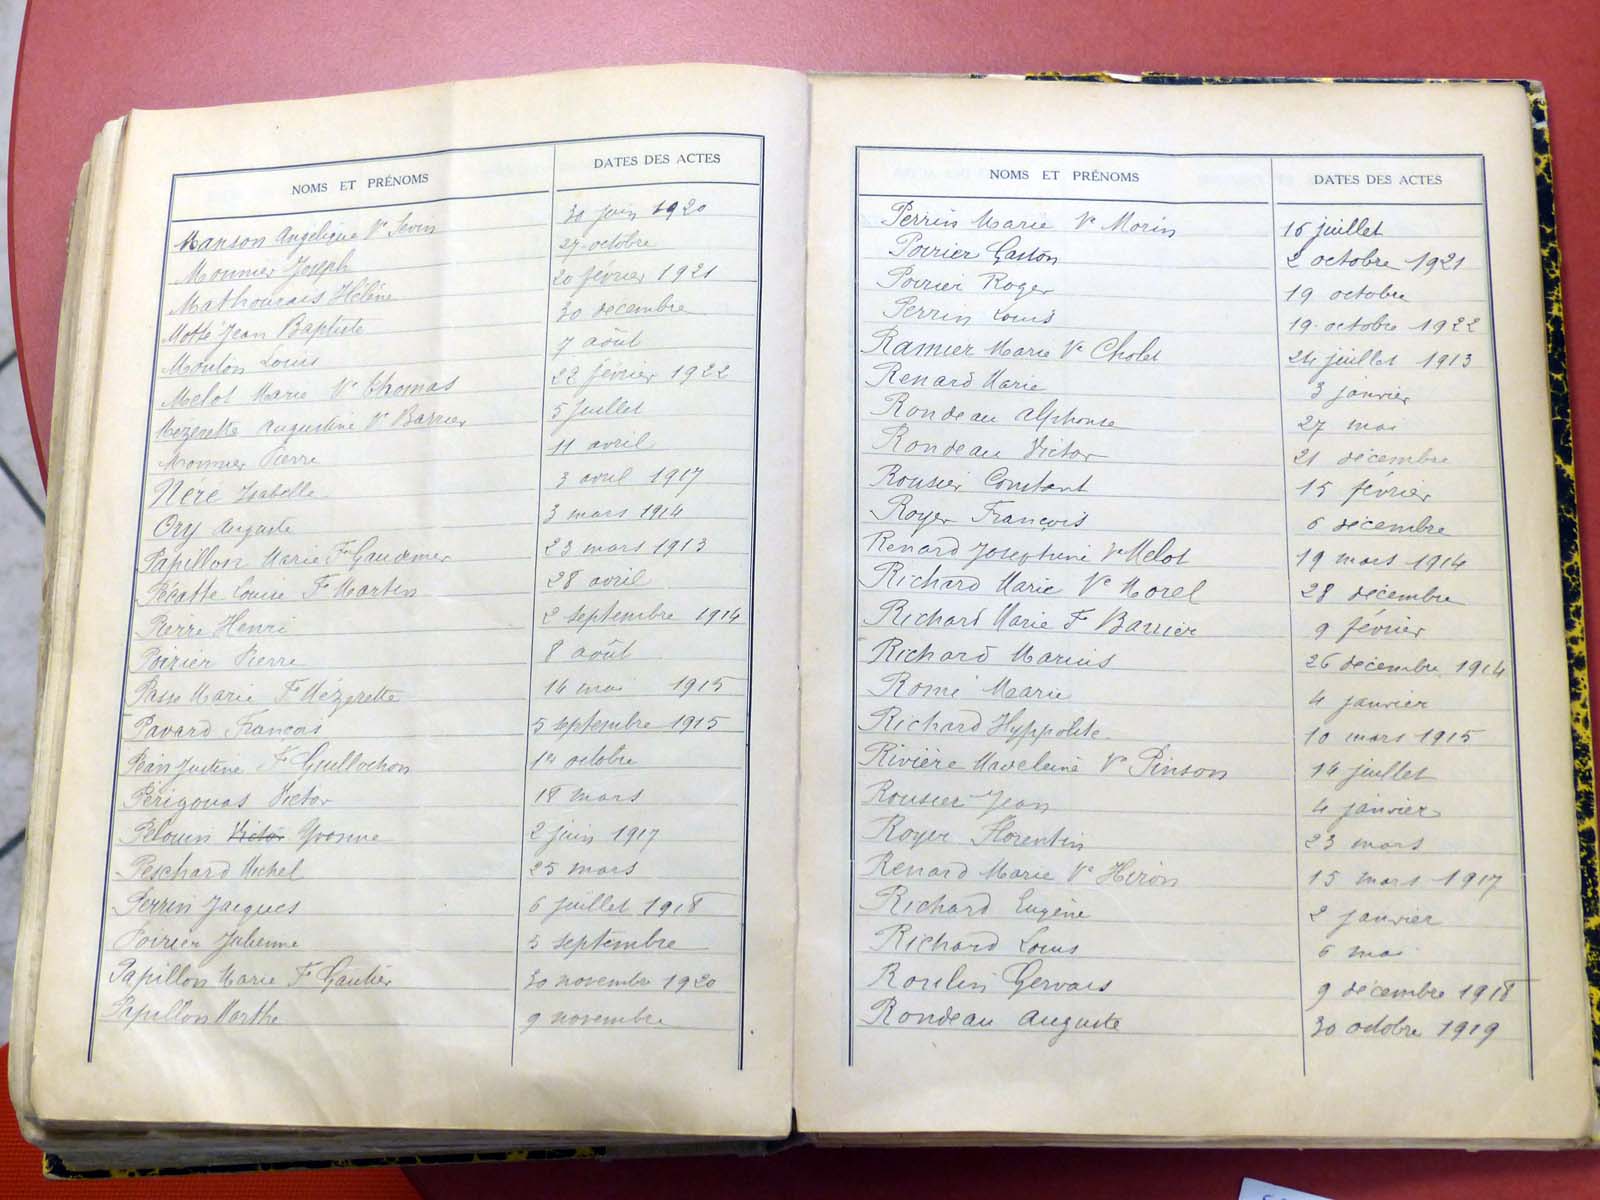 NOMS ET PRÉNOMS DATES DES ACTES
Manson Angélique Vᵉ Sevin 30 juin 1920
Monnier Joseph 27 octobre
Mathourais Hélène 20 février 1921
Motté Jean Baptiste 30 décembre
Mouton Louis 7 août
Melot Marie Vᵉ Thomas 22 février 1922
Mezerette Augustine Vᵉ Barrier 5 juillet
Monnier Pierre 11 avril
Néré Isabelle 3 avril 1917
Ory Auguste 3 mars 1914
Papillon Marie Fᵉ Gaudmer 23 mars 1913
Pécatte Louise Fᵉ Martin 28 avril
Pierre Henri 2 septembre 1914
Poirier Pierre 8 août
Passe Marie Fᵉ Mézerette 14 mai 1915
Pavard François 5 septembre 1915
Péan Justine Fᵉ Guillochon 14 octobre
Périgouas Victor 18 mars
Pelouin Victor Yvonne 2 juin 1917
Peschard Michel 25 mars
Perrin Jacques 6 juillet 1918
Poirier Julienne 5 septembre
Papillon Marie Fᵉ Gautier 30 novembre 1920
Papillon Marthe 9 novembre
NOMS ET PRÉNOMS DATES DES ACTES
Perrin Marie Vᵉ Morin 16 juillet
Poirier Gaston 2 octobre 1921
Poirier Roger 19 octobre
Perrin Louis 19 octobre 1922
Ramier Marie Vᵉ Cholet 24 juillet 1913
Renard Marie 3 janvier
Rondeau Alphonse 27 mai
Rondeau Victor 21 décembre
Rousier Constant 15 février
Royer François 6 décembre
Renard Josephine Vᵉ Melot 19 mars 1914
Richard Marie Vᵉ Morel 28 décembre
Richard Marie Fᵉ Barrier 9 février
Richard Marius 26 décembre 1914
Romé Marie 4 janvier
Richard Hyppolite 10 mars 1915
Rivière Madeleine Vᵉ Pinson 14 juillet
Rousier Jean 4 janvier
Royer Florentin 23 mars
Renard Marie Vᵉ Héron 15 mars 1917
Richard Eugène 2 janvier
Richard Louis 6 mai
Roulin Gervais 9 décembre 1918
Rondeau Auguste 30 octobre 1919